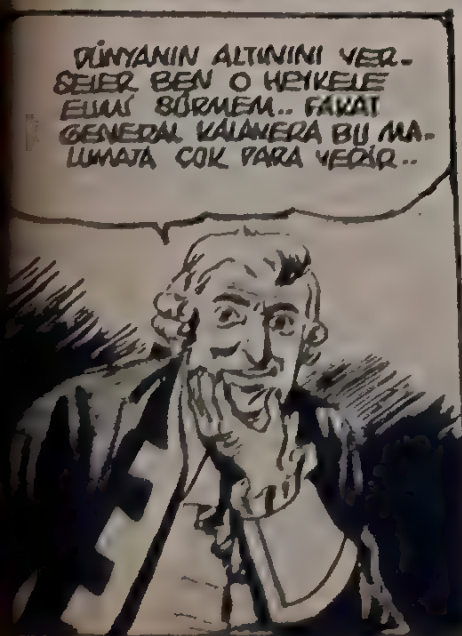 DÜNYANIN ALTININI VER-
SELER BEN O HEYKELE
ELİMİ SÜRMEM.. FAKAT
GENERAL KALAVERA BU MA-
LUMATA ÇOK PARA VERİR..